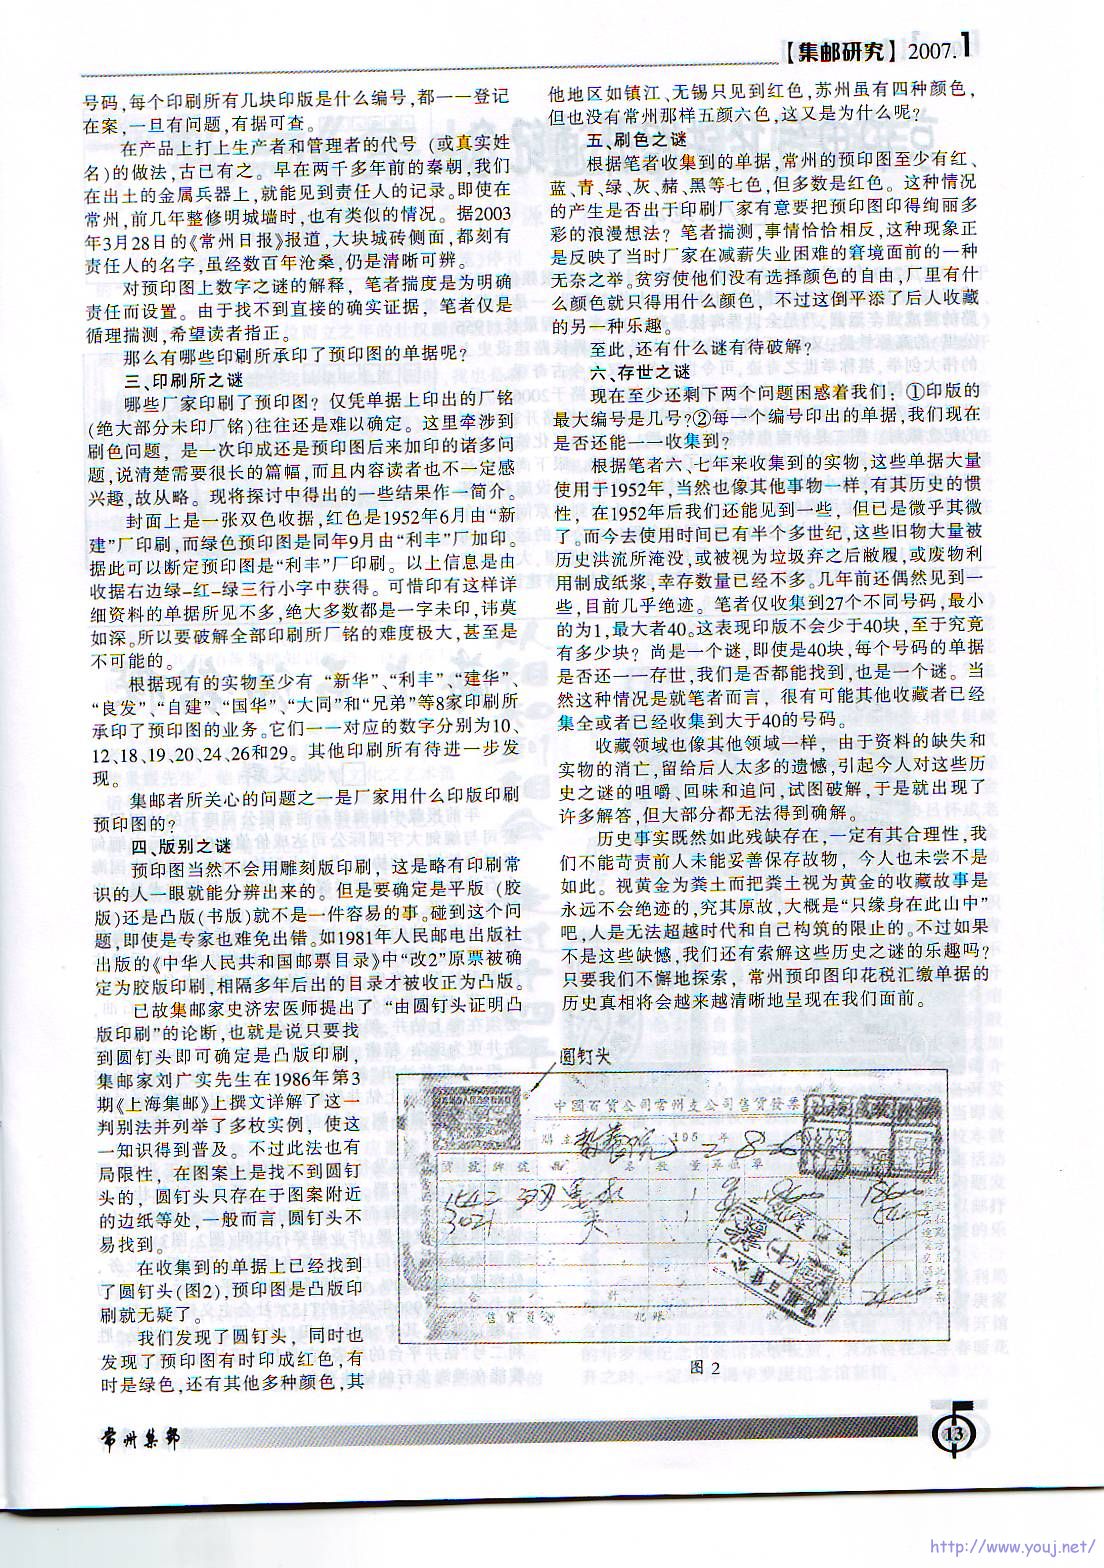 【集邮研究】2007.1
号码,每个印刷所有几块印版是什么编号,都一一登记
在案,一旦有问题,有据可查。
在产品上打上生产者和管理者的代号 (或真实姓
名)的做法,古已有之。早在两千多年前的秦朝,我们
在出土的金属兵器上,就能见到责任人的记录。即使在
常州,前几年整修明城墙时,也有类似的情况。据2003
年3月28日的《常州日报》报道,大块城砖侧面,都刻有
责任人的名字,虽经数百年沧桑,仍是清晰可辨。
对预印图上数字之谜的解释，笔者揣度是为明确
责任而设置。由于找不到直接的确实证据，笔者仅是
循理揣测,希望读者指正。
那么有哪些印刷所承印了预印图的单据呢?
三、印刷所之谜
哪些厂家印刷了预印图？仅凭单据上印出的厂铭
(绝大部分未印厂铭)往往还是难以确定。这里牵涉到
刷色问题，是一次印成还是预印图后来加印的诸多问
题,说清楚需要很长的篇幅,而且内容读者也不一定感
兴趣,故从略。现将探讨中得出的一些结果作一简介。
封面上是一张双色收据,红色是1952年6月由“新
建”厂印刷,而绿色预印图是同年9月由“利丰”厂加印。
据此可以断定预印图是“利丰”厂印刷。以上信息是由
收据右边绿-红-绿三行小字中获得。可惜印有这样详
细资料的单据所见不多,绝大多数都是一字未印,讳莫
如深。所以要破解全部印刷所厂铭的难度极大,甚至是
不可能的。
根据现有的实物至少有 “新华”、“利丰”、“建华”、
“良发”、“自建”、“国华”、“大同”和“兄弟”等8家印刷所
承印了预印图的业务。它们一一对应的数字分别为10、
12、18、19、20、24、26和29。其他印刷所有待进一步发
现。
集邮者所关心的问题之一是厂家用什么印版印刷
预印图的?
四、版别之谜
预印图当然不会用雕刻版印刷，这是略有印刷常
识的人一眼就能分辨出来的。但是要确定是平版 (胶
版)还是凸版(书版)就不是一件容易的事。碰到这个问
题,即使是专家也难免出错。如1981年人民邮电出版社
出版的《中华人民共和国邮票目录》中“改2”原票被确
定为胶版印刷,相隔多年后出的目录才被收正为凸版。
已故集邮家史济宏医师提出了 “由圆钉头证明凸
版印刷”的论断,也就是说只要找
到圆钉头即可确定是凸版印刷，
集邮家刘广实先生在1986年第3
期《上海集邮》上撰文详解了这一
判别法并列举了多枚实例，使这
一知识得到普及。不过此法也有
局限性，在图案上是找不到圆钉
头的，圆钉头只存在于图案附近
的边纸等处,一般而言,圆钉头不
易找到。
在收集到的单据上已经找到
了圆钉头(图2),预印图是凸版印
刷就无疑了。
我们发现了圆钉头，同时也
发现了预印图有时印成红色,有
时是绿色,还有其他多种颜色,其
他地区如镇江、无锡只见到红色,苏州虽有四种颜色，
但也没有常州那样五颜六色,这又是为什么呢?
五、刷色之谜
根据笔者收集到的单据,常州的预印图至少有红、
蓝、青、绿、灰、赭、黑等七色,但多数是红色。这种情况
的产生是否出于印刷厂家有意要把预印图印得绚丽多
彩的浪漫想法？笔者揣测,事情恰恰相反,这种现象正
是反映了当时厂家在减薪失业困难的窘境面前的一种
无奈之举。贫穷使他们没有选择颜色的自由,厂里有什
么颜色就只得用什么颜色，不过这倒平添了后人收藏
的另一种乐趣。
至此,还有什么谜有待破解?
六、存世之谜
现在至少还剩下两个问题困惑着我们：①印版的
最大编号是几号?②每一个编号印出的单据,我们现在
是否还能一一收集到?
根据笔者六、七年来收集到的实物,这些单据大量
使用于1952年,当然也像其他事物一样,有其历史的惯
性，在1952年后我们还能见到一些，但已是微乎其微
了。而今去使用时间已有半个多世纪,这些旧物大量被
历史洪流所淹没,或被视为垃圾弃之后敝履,或废物利
用制成纸浆,幸存数量已经不多。几年前还偶然见到一
些,目前几乎绝迹。笔者仅收集到27个不同号码,最小
的为1,最大者40。这表现印版不会少于40块,至于究竟
有多少块？尚是一个谜,即使是40块,每个号码的单据
是否还一一存世,我们是否都能找到,也是一个谜。当
然这种情况是就笔者而言，很有可能其他收藏者已经
集全或者已经收集到大于40的号码。
收藏领域也像其他领域一样，由于资料的缺失和
实物的消亡,留给后人太多的遗憾,引起今人对这些历
史之谜的咀嚼、回味和追问,试图破解,于是就出现了
许多解答,但大部分都无法得到确解。
历史事实既然如此残缺存在,一定有其合理性,我
们不能苛责前人未能妥善保存故物，今人也未尝不是
如此。视黄金为粪土而把粪土视为黄金的收藏故事是
永远不会绝迹的,究其原故,大概是“只缘身在此山中”
吧,人是无法超越时代和自己构筑的限止的。不过如果
不是这些缺憾,我们还有索解这些历史之谜的乐趣吗?
只要我们不懈地探索，常州预印图印花税汇缴单据的
历史真相将会越来越清晰地呈现在我们面前。
圆钉头
中國百貨公司常州支公司售貨發票
195 年
2 8 26
貨號 牌號 品 名 數量 單位 單
1542
3021
合 計
售貨員 記賬 收
图 2
常州集邮
13
http://www.youj.net/